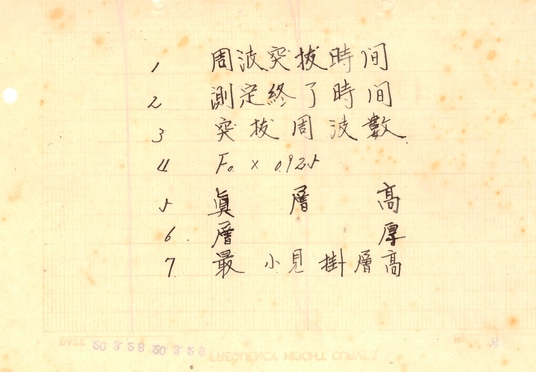 1 周波突拔時间
2 測定終了時间
3 突拔周波數
4 F₀ × 0.925
5 眞層高
6 層厚
7 最小見掛層高
DATE 20.3.28 20.3.29 FREQUENCY HEIGHT CURVES